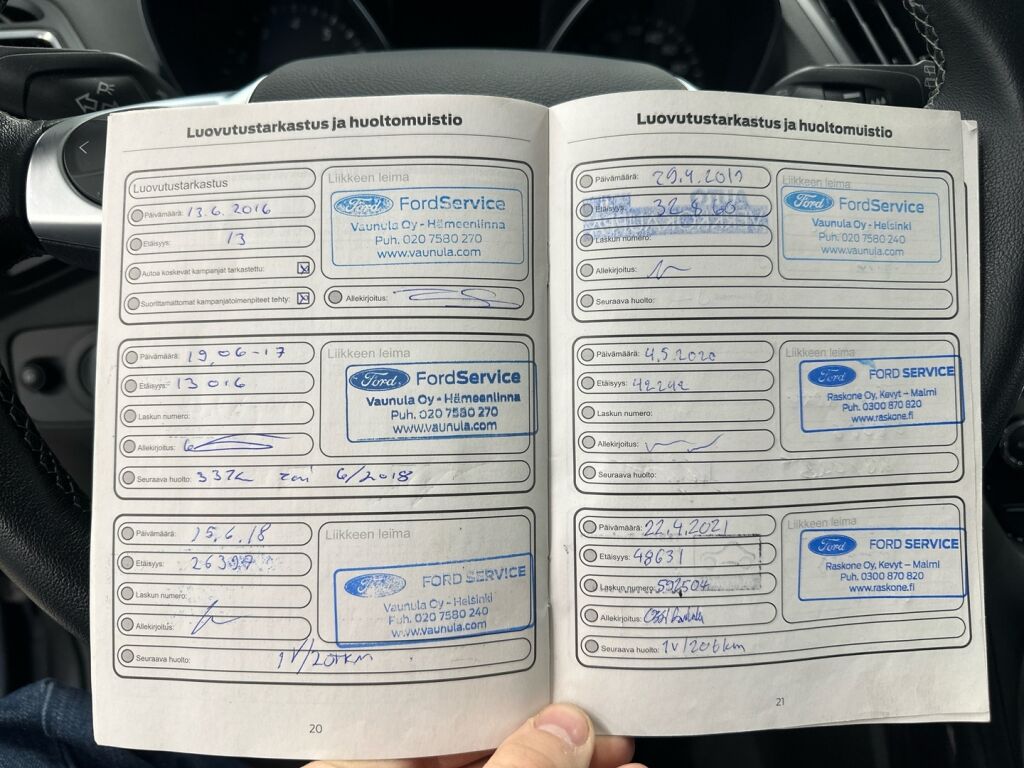 Luovutustarkastus ja huoltomuistio
Luovutustarkastus
Päivämäärä: 13.6.2016
Etäisyys: 13
Autoa koskevat kampanjat tarkastettu:
Suorittamattomat kampanjatoimenpiteet tehty:
Liikkeen leima
Ford FordService
Vaunula Oy - Hämeenlinna
Puh. 020 7580 270
www.vaunula.com
Allekirjoitus:
Päivämäärä: 19.06-17
Etäisyys: 13016
Laskun numero:
Allekirjoitus:
Seuraava huolto: 33TK tai 6/2018
Liikkeen leima
Ford FordService
Vaunula Oy - Hämeenlinna
Puh. 020 7580 270
www.vaunula.com
Päivämäärä: 15.6.18
Etäisyys:
Laskun numero:
Allekirjoitus:
Seuraava huolto: 1V/20TKM
Liikkeen leima
Ford FORD SERVICE
Vaunula Oy - Helsinki
Puh. 020 7580 240
www.vaunula.com
20
Luovutustarkastus ja huoltomuistio
Päivämäärä: 29.4.2019
Etäisyys:
Laskun numero:
Allekirjoitus:
Seuraava huolto:
Liikkeen leima
Ford FordService
Vaunula Oy - Helsinki
Puh. 020 7580 240
www.vaunula.com
Päivämäärä: 4.5.2020
Etäisyys: 42292
Laskun numero:
Allekirjoitus:
Seuraava huolto:
Liikkeen leima
Ford FORD SERVICE
Raskone Oy, Kevyt – Malmi
Puh. 0300 870 820
www.raskone.fi
Päivämäärä: 22.4.2021
Etäisyys: 48631
Laskun numero: 592504
Allekirjoitus:
Seuraava huolto: 1v/20tkm
Liikkeen leima
Ford FORD SERVICE
Raskone Oy, Kevyt – Malmi
Puh. 0300 870 820
www.raskone.fi
21